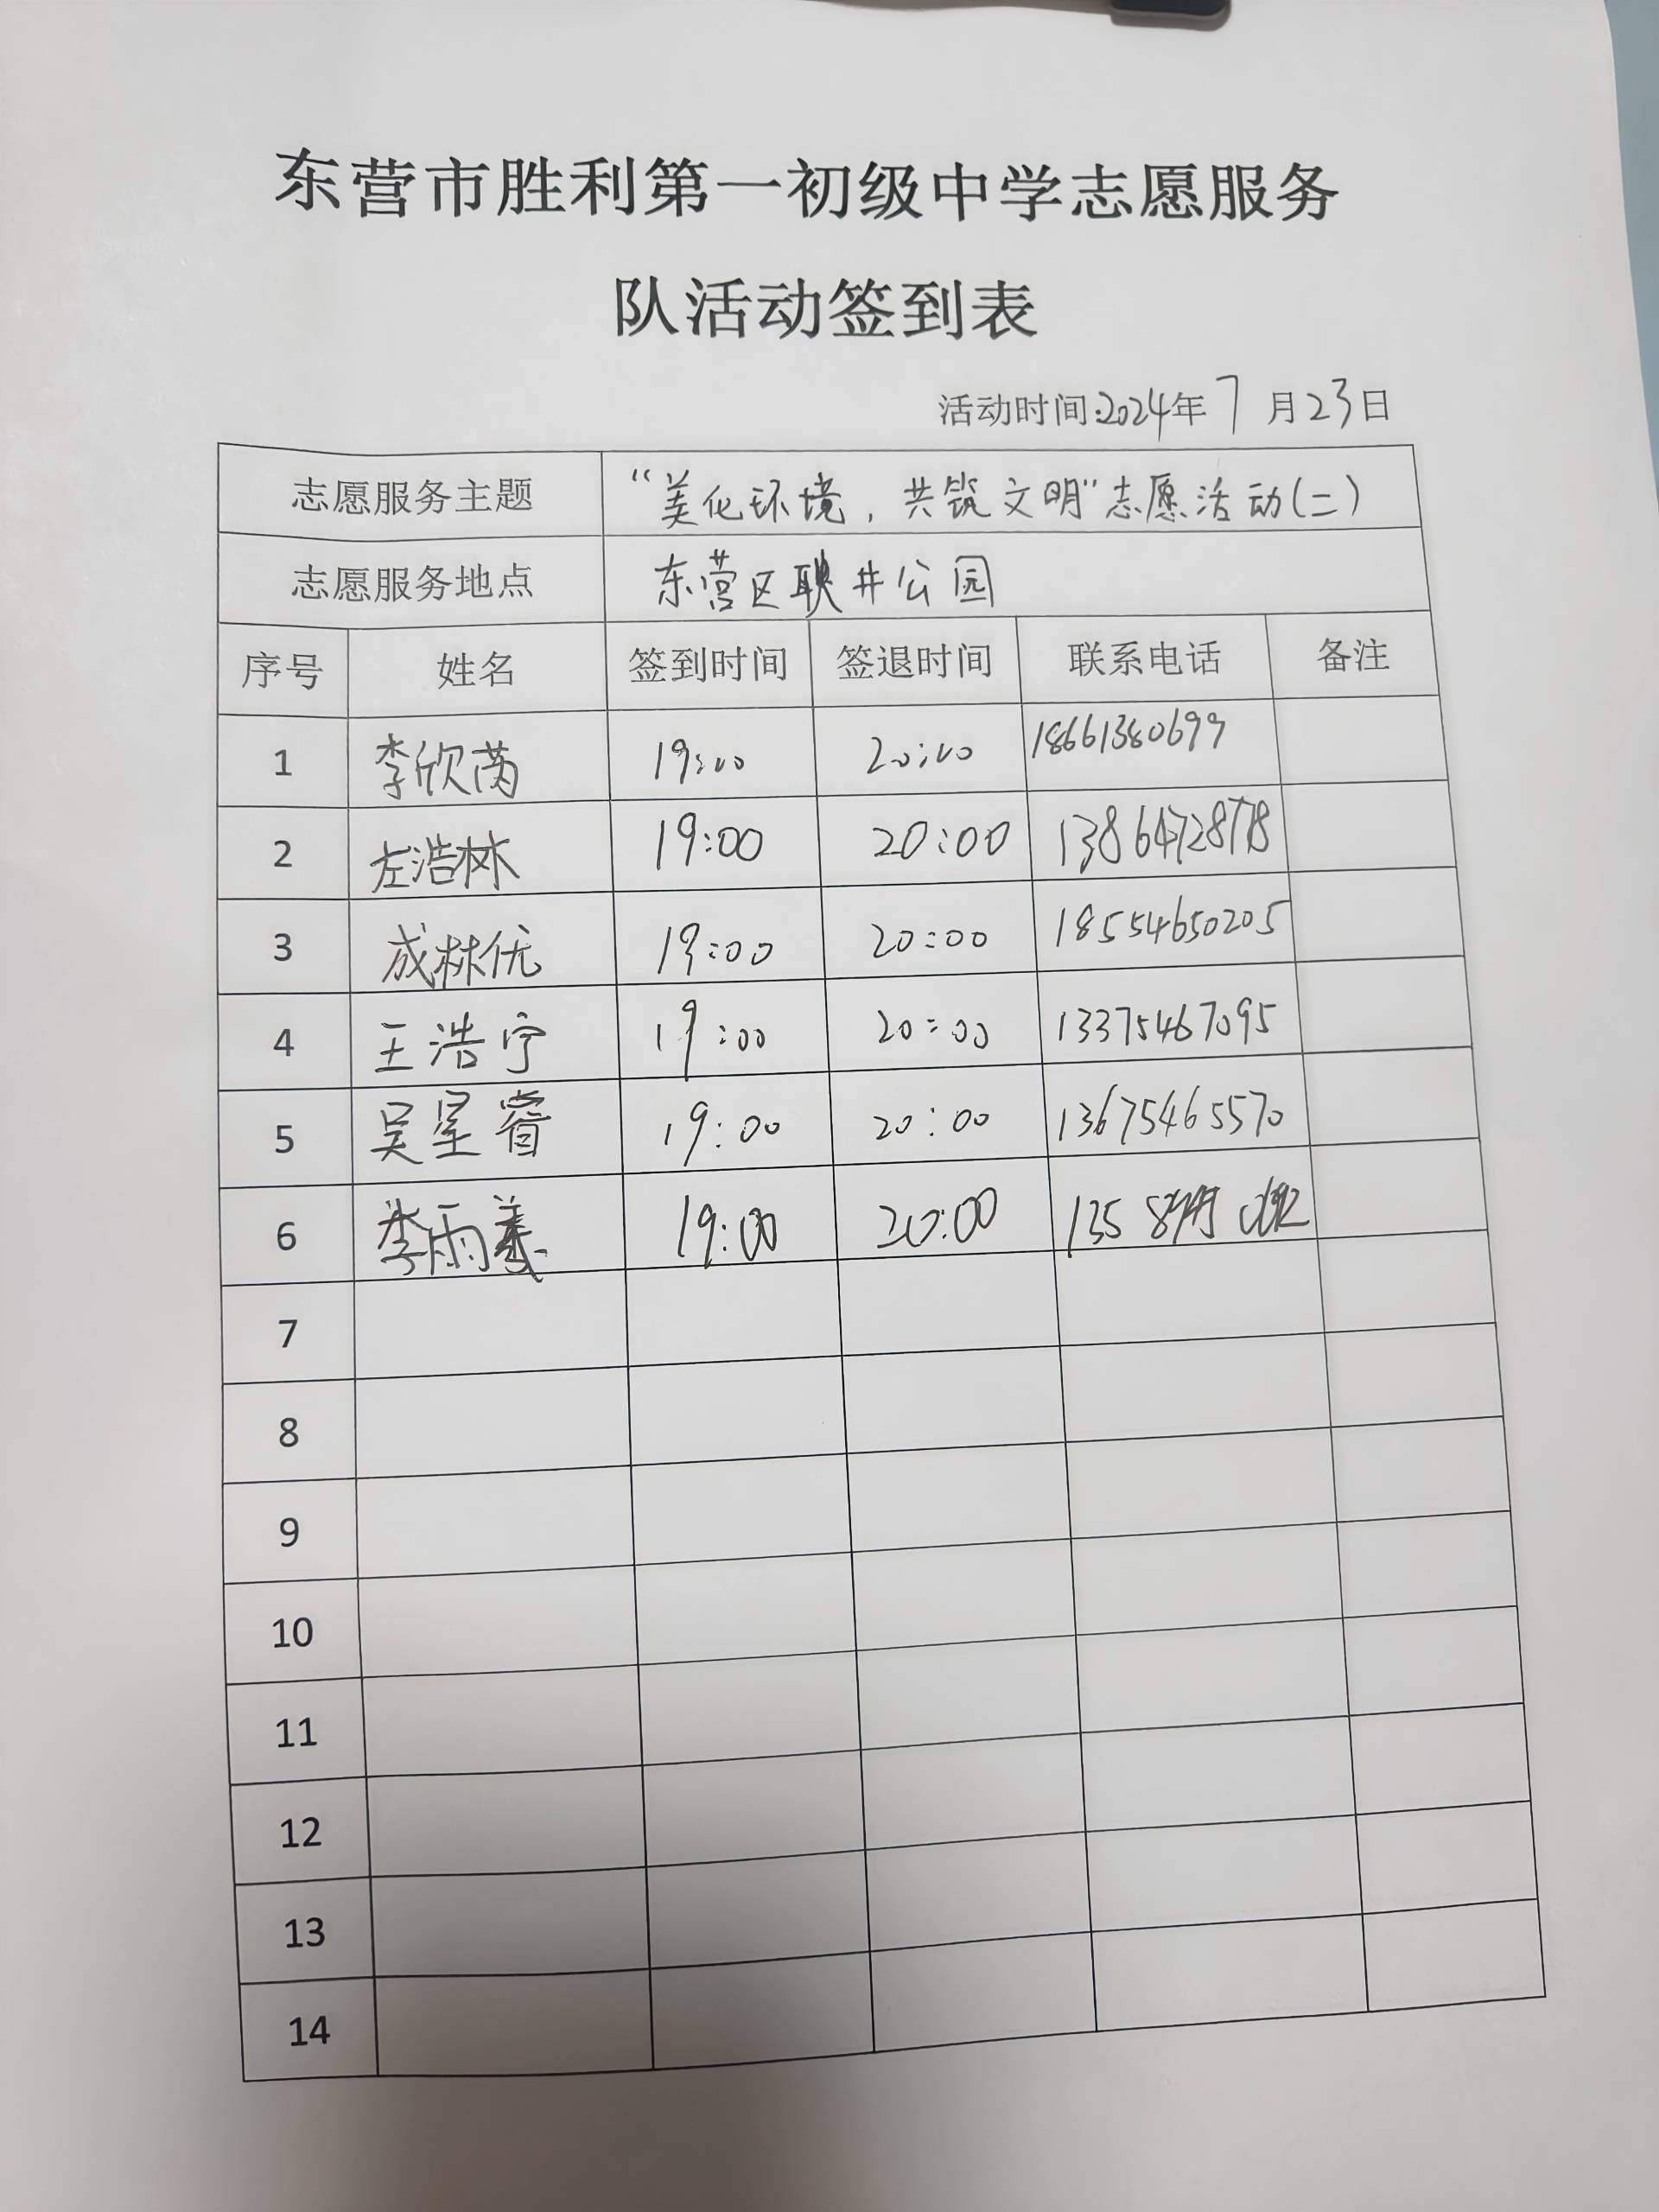 东营市胜利第一初级中学志愿服务
队活动签到表
活动时间:2024年7月23日
志愿服务主题 “美化环境，共筑文明”志愿活动(二)
志愿服务地点 东营区耿井公园
序号 姓名 签到时间 签退时间 联系电话 备注
1 李欣芮 19:00 20:00 18661380699
2 左浩林 19:00 20:00
3 成林优 19:00 20:00 18554650205
4 王浩宁 19:00 20:00 13375467095
5 吴星睿 19:00 20:00 13675465570
6 李雨 19:00 20:00
7
8
9
10
11
12
13
14